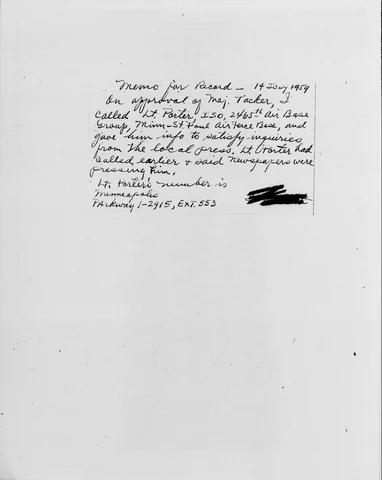 Memo for Record - 14 July 1959
On approval of Maj. Tacker, I
called Lt. Porter, ISO, 2465th Air Base
Group, Minn-St Paul Air Force Base, and
gave him info to satisfy inquiries
from the local press. Lt Porter had
called earlier & said newspapers were
pressing him.
Lt. Porter's number is
Minneapolis
PArkway 1-2915, EXT. 553